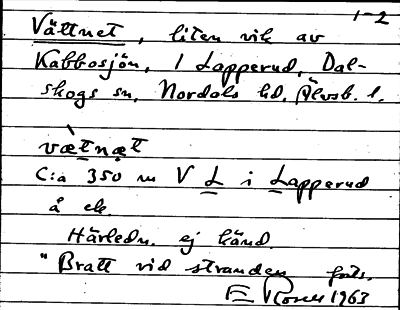 1-2
Vättnet, liten vik av
Kabbosjön, i Lapperud, Dal-
skogs sn, Nordals hd. Älvsb. l.
vætnæt
C:a 350 m V L i Lapperud
å ek.
Härledn. ej känd.
"Bratt vid stranden
E 1963